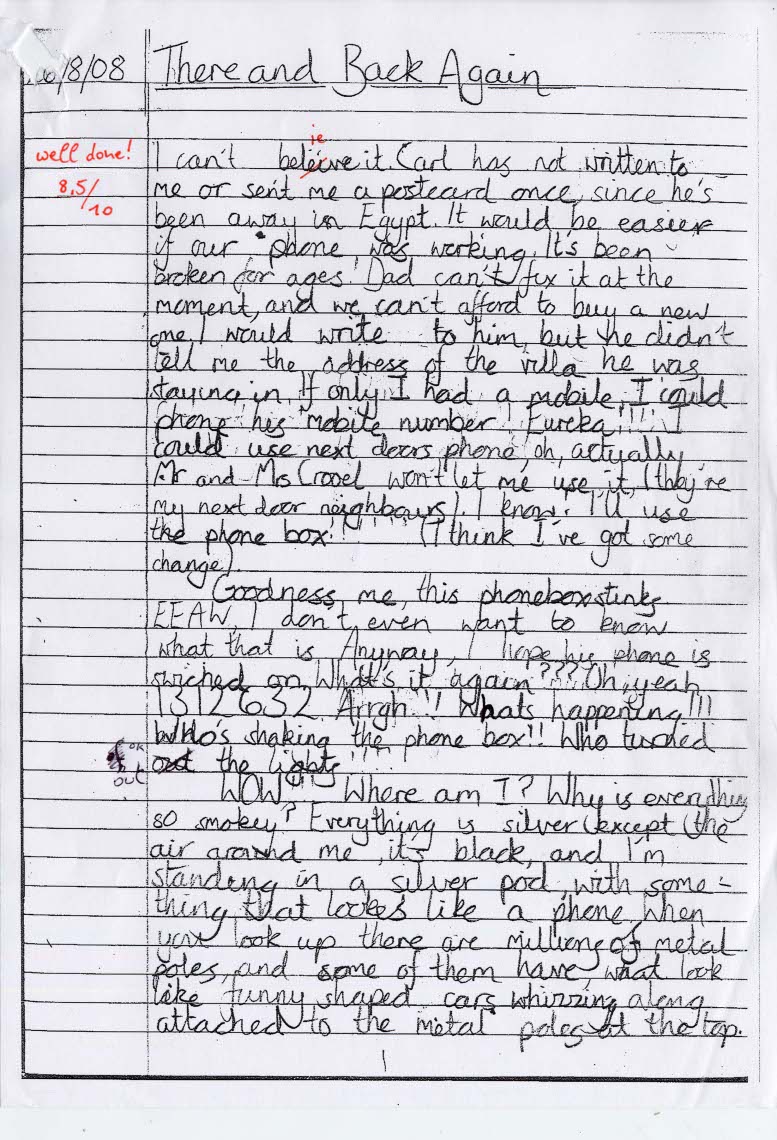 /8/08 There and Back Again
well done!
8,5/10
ie
I can't beleive it. Carl has not written to
me or sent me a postcard once, since he's
been away in Egypt. It would be easier
if our phone was working. It's been
broken for ages! Dad can't fix it at the
moment, and we can't afford to buy a new
one. I would write to him, but he didn't
tell me the address of the villa he was
staying in. If only I had a mobile, I could
phone his mobile number! Eureka!!!! I
could use next doors phone, oh, actually
Mr and Ms Crooel won't let me use it, (they're
my next door neighbours). I know! I'll use
the phone box!!'''' (I think I've got some
change).
Goodness me, this phonebox stinks
EEAW, I don't even want to know
what that is. Anyway, I hope his phone is
swiched on. What's it again??? Oh, yeah
1312632 Arrgh!! Whats happening!!!
Who's shaking the phone box!! Who turned
out the lights!!!
out
WOW!!! Where am I? Why is everything
so smokey? Everything is silver (except (the
air around me, it's black, and I'm
standing in a silver pod, with some-
thing that lookes like a phone. When
you look up there are millions of metal
poles, and some of them have, what look
like funny shaped cars whirring along
attached to the metal poles at the top.
1